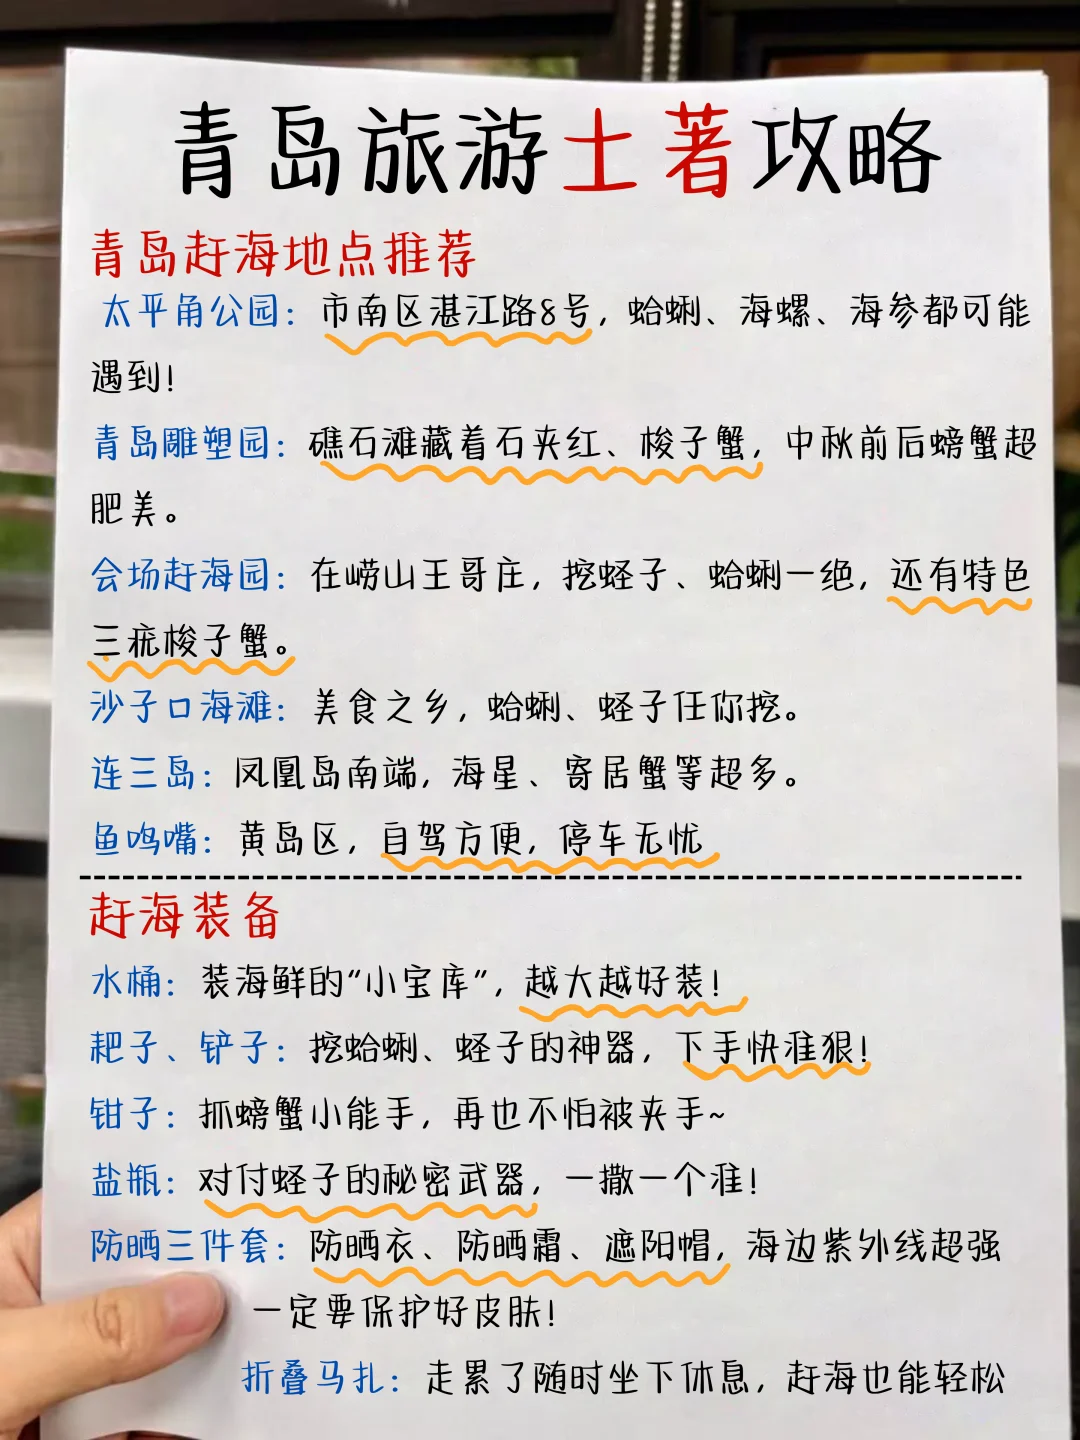 青岛旅游土著攻略
青岛赶海地点推荐
太平角公园：市南区湛江路8号，蛤蜊、海螺、海参都可能
遇到！
青岛雕塑园：礁石滩藏着石夹红、梭子蟹，中秋前后螃蟹超
肥美。
会场赶海园：在崂山王哥庄，挖蛏子、蛤蜊一绝，还有特色
三疣梭子蟹。
沙子口海滩：美食之乡，蛤蜊、蛏子任你挖。
连三岛：凤凰岛南端，海星、寄居蟹等超多。
鱼鸣嘴：黄岛区，自驾方便，停车无忧
赶海装备
水桶：装海鲜的“小宝库”，越大越好装！
耙子、铲子：挖蛤蜊、蛏子的神器，下手快准狠！
钳子：抓螃蟹小能手，再也不怕被夹手~
盐瓶：对付蛏子的秘密武器，一撒一个准！
防晒三件套：防晒衣、防晒霜、遮阳帽，海边紫外线超强
一定要保护好皮肤！
折叠马扎：走累了随时坐下休息，赶海也能轻松